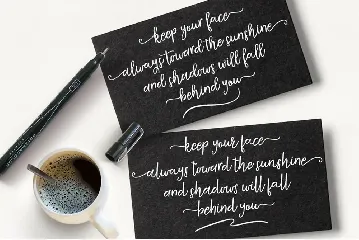 keep your face
always toward the sunshine
and shadows will fall
behind you
keep your face
always toward the sunshine
and shadows will fall
behind you